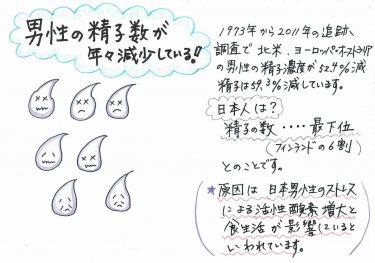 男性の精子数が
年々減少している!
1973年から2011年の追跡
調査で北米、ヨーロッパ・オーストラリア
の男性の精子濃度が52.4%減
精子は59.3%減しています。
日本人は?
精子の数‥‥最下位
(フィンランドの6割)
とのことです。
★原因は日本男性のストレス
による活性酸素増大と
食生活が影響していると
いわれています。